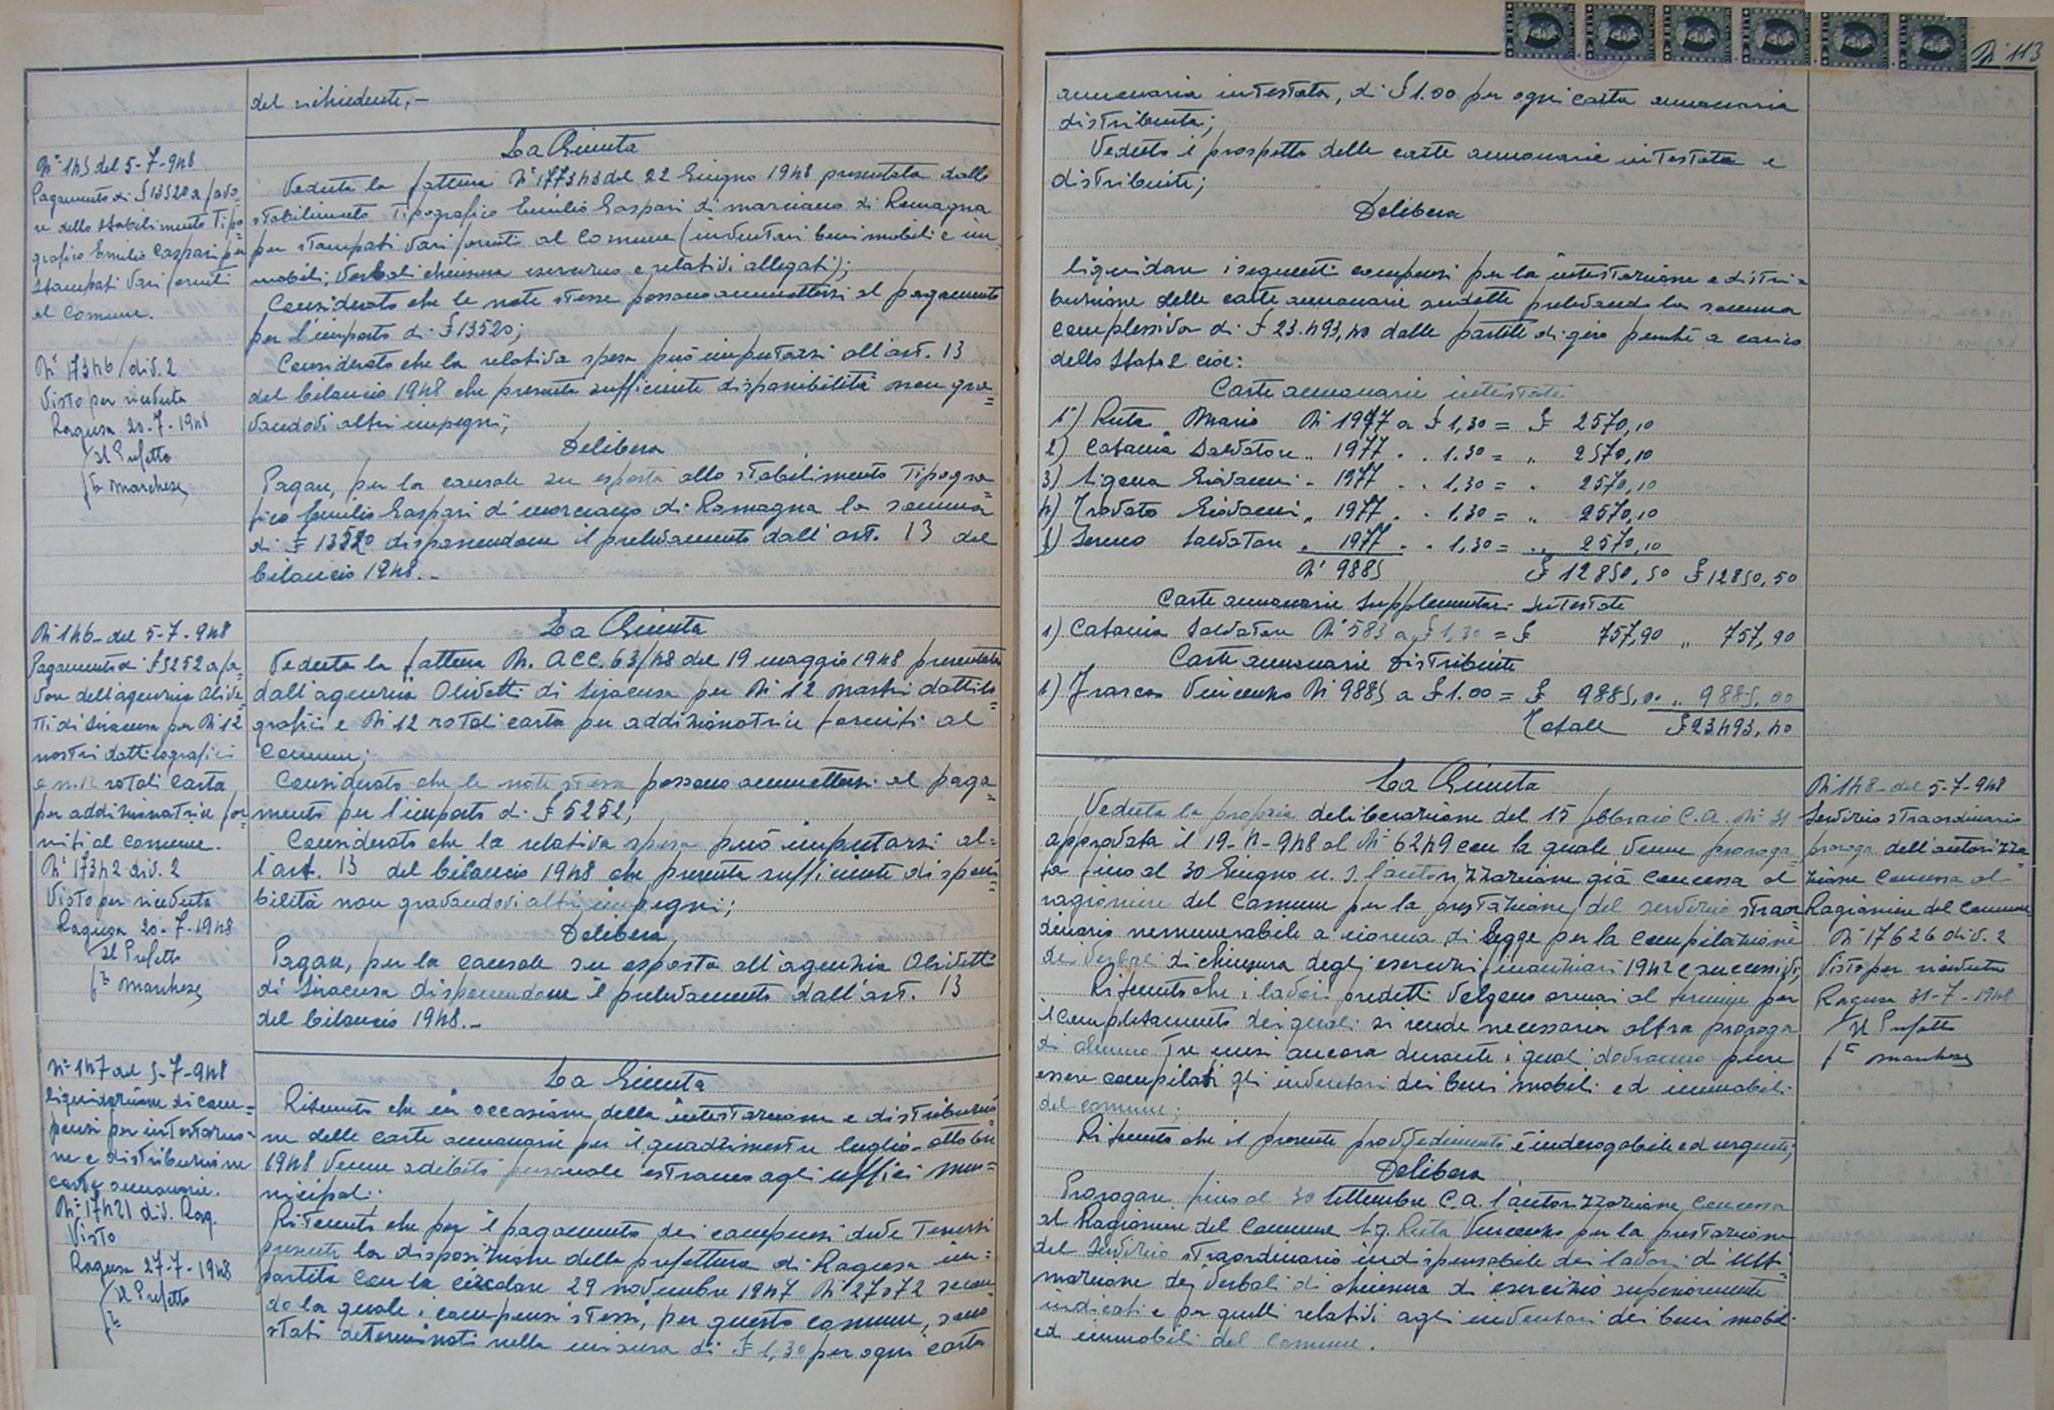 del richiedente.-
N° 145 del 5-7-948
Pagamento di £ 13520 a favo
re dello stabilimento Tipo
grafico Emilio Gaspari per
stampati vari forniti
al Comune.
N° 17346/div. 2
Visto per ricevuta
Ragusa 20-7-1948
Il Prefetto
fto Marchese
La Giunta
Veduta la fattura N° 177343 del 22 Giugno 1948 presentata dallo
stabilimento Tipografico Emilio Gaspari di Morciano di Romagna
per stampati vari forniti al Comune (inventari beni mobili e im=
mobili, verbali chiusura esercizio e relativi allegati);
Considerato che le note stesse possono ammettersi al pagamento
per l'importo di £ 13520;
Considerato che la relativa spesa può imputarsi all'art. 13
del bilancio 1948 che presenta sufficiente disponibilità non gra=
vandovi altri impegni;
Delibera
Pagare, per la causale su esposta allo stabilimento Tipogra=
fico Emilio Gaspari di Morciano di Romagna la somma
di £ 13520 disponendone il prelevamento dall'art. 13 del
bilancio 1948.-
N° 146 - del 5-7-948
Pagamento di £ 5252 a fa
vore dell'agenzia Olive=
tti di Siracusa per N° 12
nastri dattilografici
e n. 12 rotoli carta
per addizionatrice for=
niti al comune.
N° 17342 div. 2
Visto per ricevuta
Ragusa 20-7-1948
Il Prefetto
fto Marchese
La Giunta
Veduta la fattura N. ACC. 63/48 del 19 maggio 1948 presentata
dall'agenzia Olivetti di Siracusa per N° 12 nastri dattilo=
grafici e N° 12 rotoli carta per addizionatrice forniti al
Comune;
Considerato che le note stesse possono ammettersi al paga=
mento per l'importo di £ 5252;
Considerato che la relativa spesa può imputarsi al=
l'art. 13 del bilancio 1948 che presenta sufficiente disponi=
bilità non gravandovi altri impegni;
Delibera
Pagare, per la causale su esposta all'agenzia Olivetti
di Siracusa disponendone il prelevamento dall'art. 13
del bilancio 1948.-
N° 147 del 5-7-948
liquidazione di com=
pensi per intestazio=
ne e distribuzione
carte annonarie.
N° 17421 div. Rag.
Visto
Ragusa 27-7-1948
Il Prefetto
fto
La Giunta
Ritenuto che in occasione della intestazione e distribuzio=
ne delle carte annonarie per il quadrimestre luglio-ottobre
1948 venne adibito personale estraneo agli uffici mu=
nicipali;
Ritenuto che per il pagamento dei compensi deve tenersi
presente la disposizione della prefettura di Ragusa im=
partita con la circolare 29 novembre 1947 N° 27072 secon
do la quale i compensi stessi, per questo comune, sono
stati determinati nella misura di £ 1,30 per ogni carta
N° 113
annonaria intestata, di £ 1.00 per ogni carta annonaria
distribuita;
Veduto il prospetto delle carte annonarie intestate e
distribuite;
Delibera
liquidare i seguenti compensi per la intestazione e distri=
buzione delle carte annonarie sudette prelevando la somma
complessiva di £ 23.493,40 dalle partite di giro perché a carico
dello Stato e cioè:
Carte annonarie intestate
1°) Ruta Mario N° 1977 a £ 1,30 = £ 2570,10
2) Catania Salvatore " 1977 " " 1.30 = " 2570,10
3) Ligena Giovanni " 1977 " " 1,30 = " 2570,10
4) Trovato Giovanni " 1977 " " 1.30 = " 2570,10
5) Sereno Salvatore " 1977 " " 1,30 = " 2570,10
N° 9885 £ 12850,50 £ 12850,50
Carte annonarie supplementari intestate
1) Catania Salvatore N° 583 a £ 1,30 = £ 757,90 " 757,90
Carte annonarie distribuite
1) Franco Vincenzo N° 9885 a £ 1.00 = £ 9885,00 " 9885,00
Totale £ 23493,40
La Giunta
Veduta la propria deliberazione del 15 febbraio C.A. N° 31
approvata il 19-4-948 al N° 6249 con la quale venne proroga
ta fino al 30 Giugno u. s. l'autorizzazione già concessa al
ragioniere del Comune per la prestazione del servizio straor
dinario remunerabile a norma di legge per la compilazione
dei verbali di chiusura degli esercizi finanziari 1942 e successivi;
Ritenuto che i lavori predetti volgono ormai al termine per
il completamento dei quali si rende necessaria altra proroga
di almeno tre mesi ancora durante i quali dovranno pure
essere compilati gli inventari dei beni mobili ed immobili
del comune;
Ritenuto che il presente provvedimento è inderogabile ed urgente;
Delibera
Prorogare fino al 30 Settembre C.A. l'autorizzazione concessa
al Ragioniere del Comune Sig. Ruta Vincenzo per la prestazione
del servizio straordinario indispensabile dei lavori d'ulti=
mazione dei verbali di chiusura di esercizio superiormente
indicati e per quelli relativi agli inventari dei beni mobili
ed immobili del Comune.
N° 148 - del 5-7-948
Servizio straordinario
proroga dell'autorizza=
zione concessa al
Ragioniere del Comune
N° 17626 div. 2
Visto per ricevuta
Ragusa 31-7-1948
Il Prefetto
fto Marchese